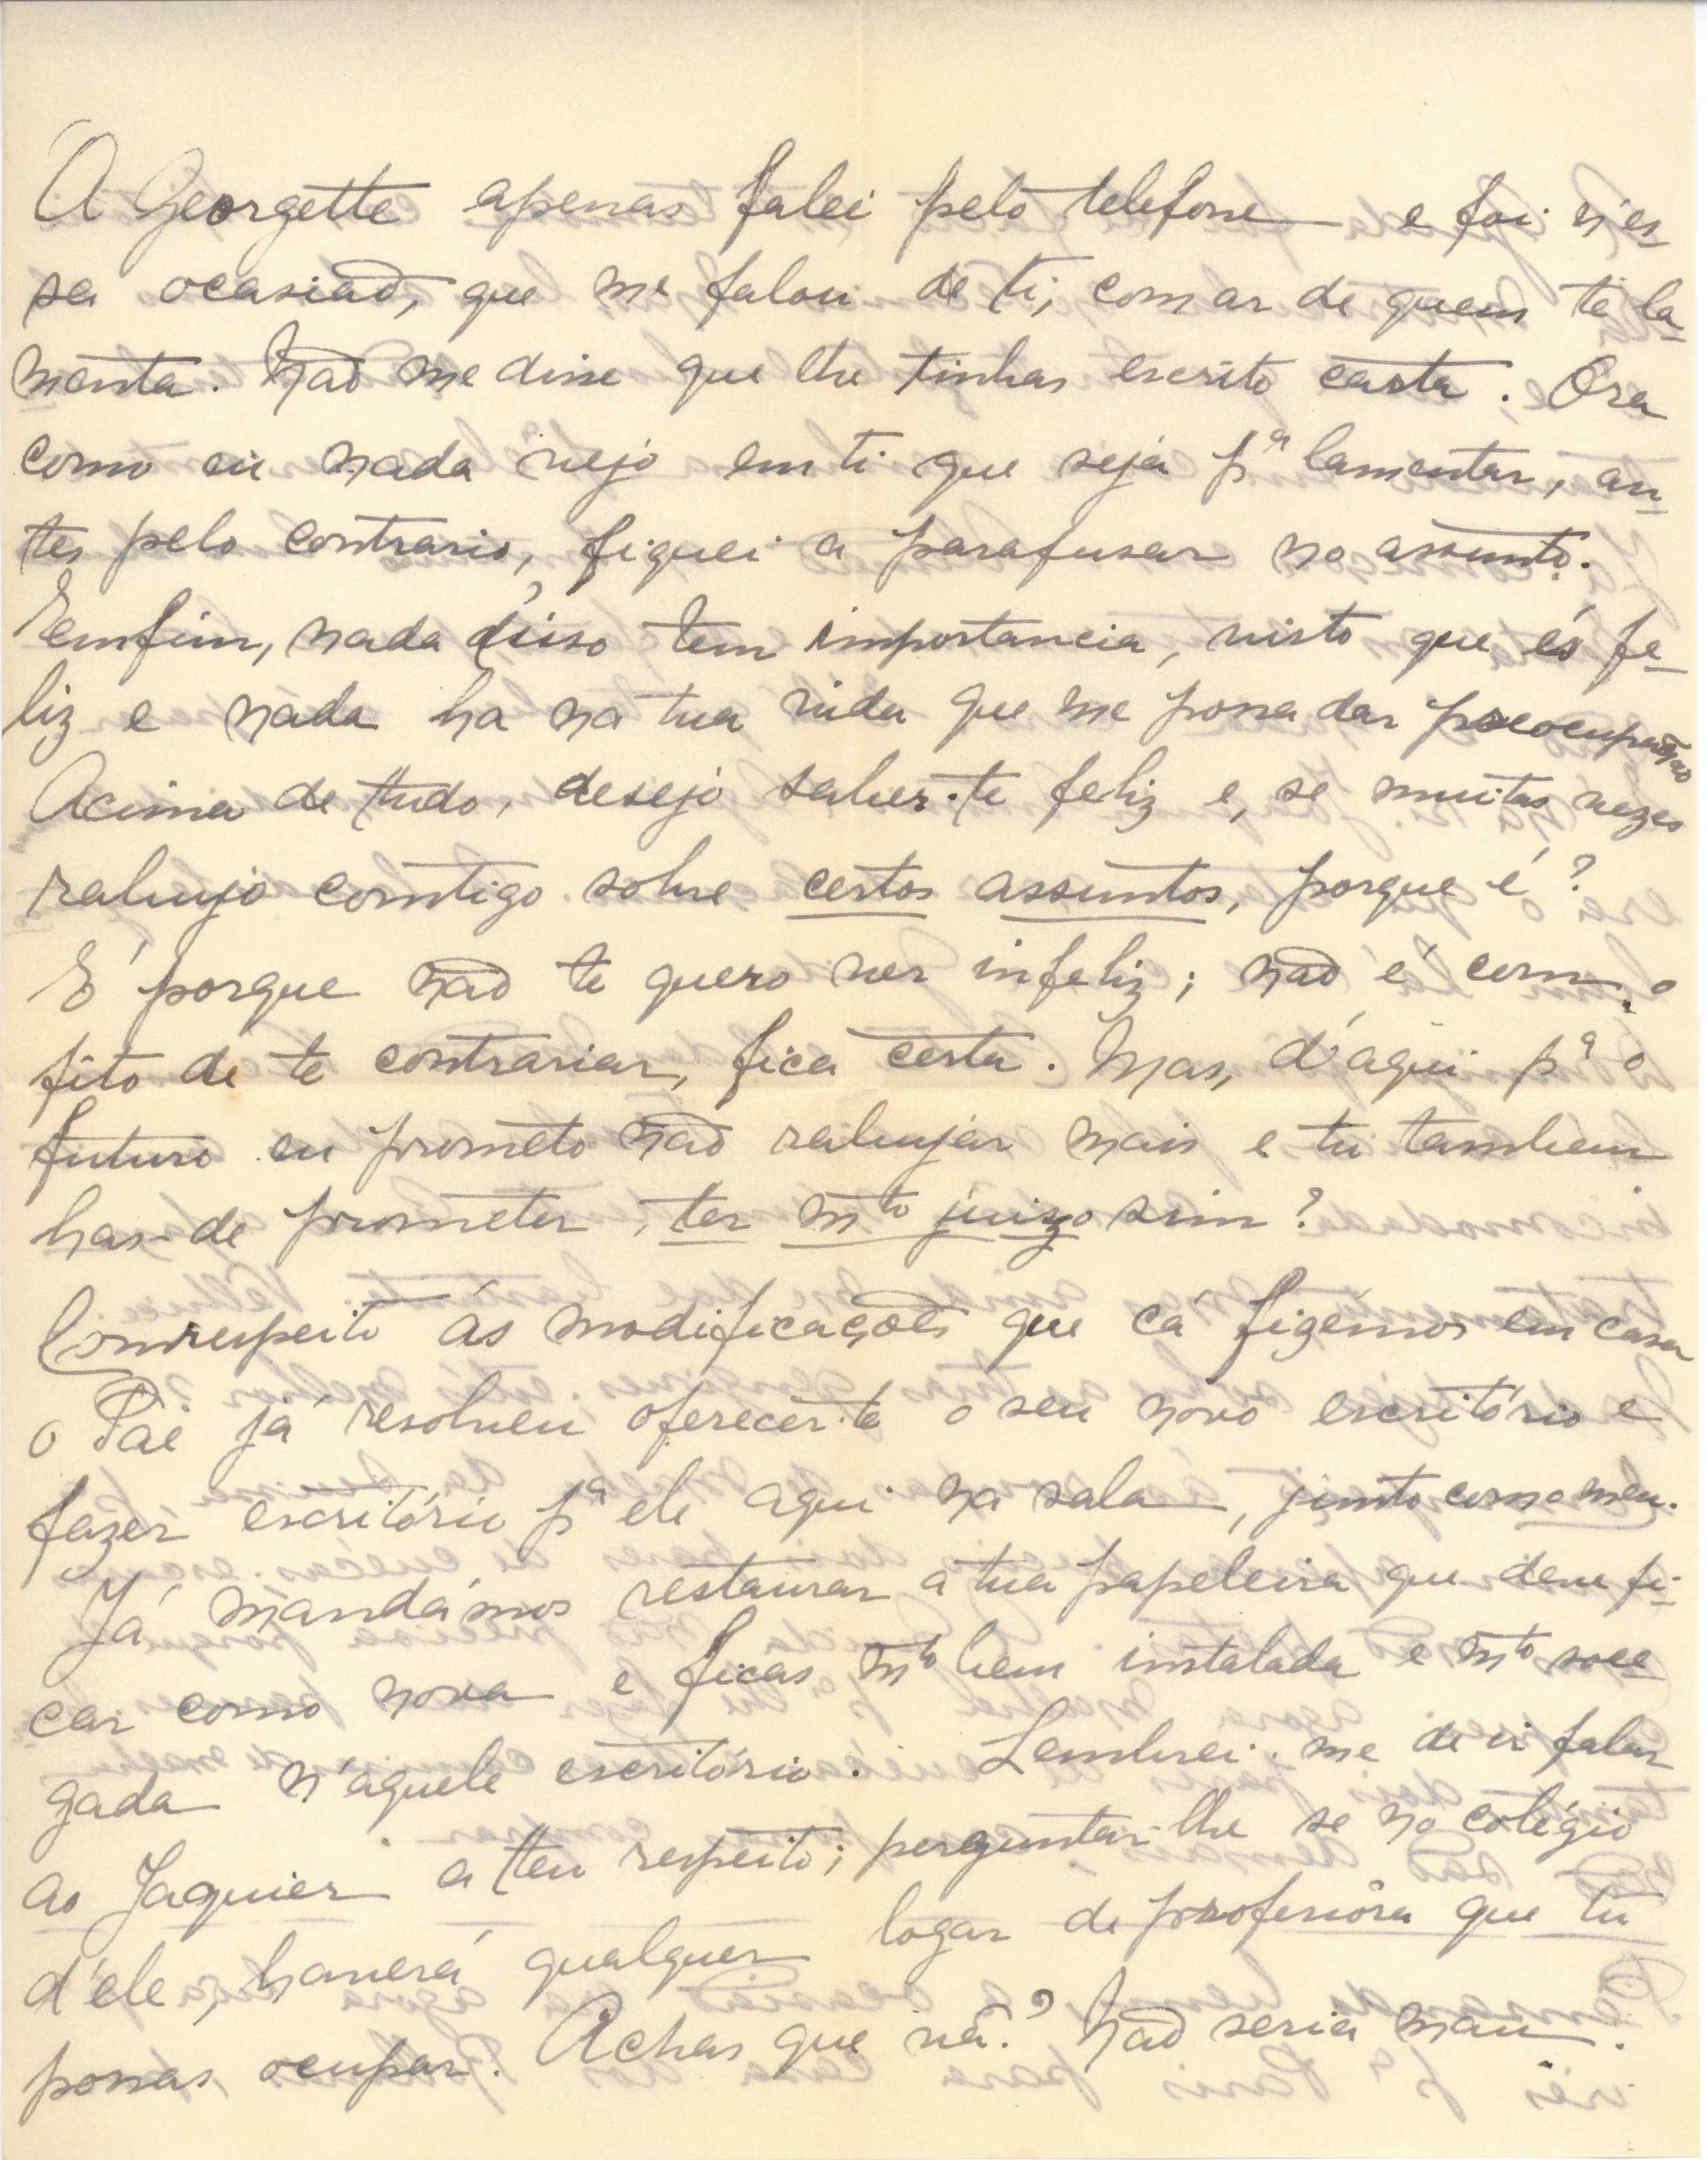 Á Georgette apenas falei pelo telefone e foi n'es-
sa ocasião, que me falou de ti, com ar de quem te la-
menta. Não me disse que lhe tinhas escrito carta. Ora
como eu nada vejo em ti que seja pª lamentar, an-
tes pelo contrario, fiquei a parafusar no assunto.
Emfim, nada disso tem importancia, visto que és fe-
liz e nada ha na tua vida que me possa dar preocupação
Acima de tudo, desejo saber-te feliz e, se muitas vezes
rabujo comtigo sobre certos assuntos, porque é?
É porque não te quero ver infeliz; não é com o
fito de te contrariar, fica certa. Mas, d'aqui pª o
futuro eu prometo não rabujar mais e tu tambem
has-de prometer, ter mto juizo sim?
Com respeito ás modificações que cá fizémos em casa
o Pai já resolveu oferecer-te o seu novo escritório e
fazer escritório pª ele aqui na sala, junto com o meu.
Já mandámos restaurar a tua papeleira que deve fi-
car como nova e ficas mto bem instalada e mto soce
gada n'aquele escritório. Lembrei-me de ir falar
ao Jaquier a teu respeito; perguntar-lhe se no colégio
d'ele, haverá qualquer logar de professôra que tu
possas ocupar. Achas que vá? Não seria mau.